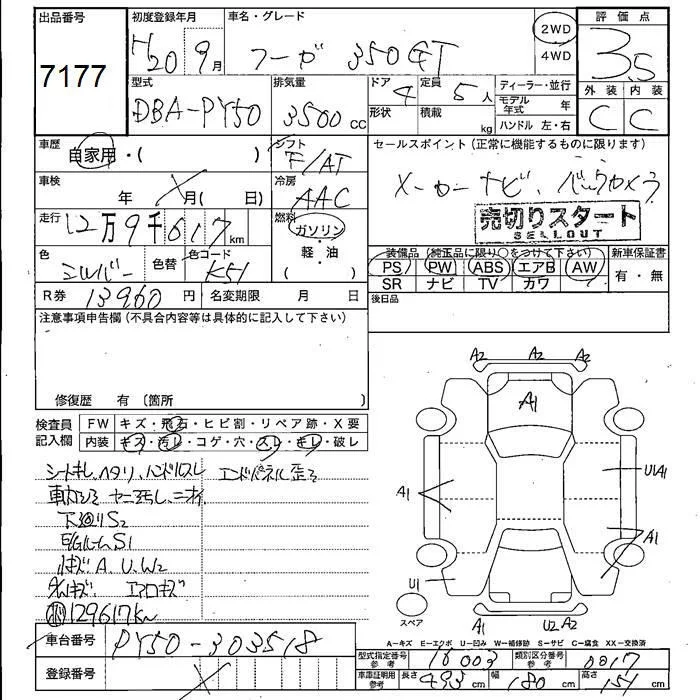 出品番号
7177
初度登録年月
H20 9月
車名・グレード
フーガ 350GT
2WD
4WD
評価点
3.5
外装 内装
C C
型式
DBA-PY50
排気量
3500 cc
ドア 4
形状
定員 5人
積載 kg
ディーラー・並行
モデル年式 年
ハンドル 左・右
車歴
自家用・( )
シフト
F/AT
車検
年 月( 日)
冷房
AAC
走行
12万9千617km
燃料
ガソリン
軽・油
( )
色
シルバー
色替
色コード
K51
R券 13960円
名変期限 月 日
セールスポイント (正常に機能するものに限ります)
メーカーナビ、バックカメラ
売切りスタート
SELLOUT
装備品 (純正品に限り○をつけて下さい)
PS PW ABS エアB AW
SR ナビ TV カワ
新車保証書
有・無
後日品
注意事項申告欄 (不具合内容等は具体的に記入して下さい)
修復歴 有 〔箇所 〕
検査員記入欄
FW キズ・飛石・ヒビ割・リペア跡・X要
内装 キズ・汚レ・コゲ・穴・スレ・キレ・破レ
シートキレ、ヘタリ、ハンドルスレ
エンドパネル歪ミ
車内シミ ヤニ汚レ、ニオイ
下廻りS2
E/GルームS1
小キズ A、U、W2
光軸キズ エアロキズ
129617km
A2 A2 A2
A1
U1A1
A1
A1
U1
スペア
A1 U2 A2
A-キズ E-エクボ U-凹み W-補修跡 S-サビ C-腐食 XX-交換済
車台番号
PY50-303518
登録番号
型式指定番号 参考 16003
類別区分番号 参考 0017
車庫証明用 参考
長さ 493 cm
幅 180 cm
高さ 151 cm